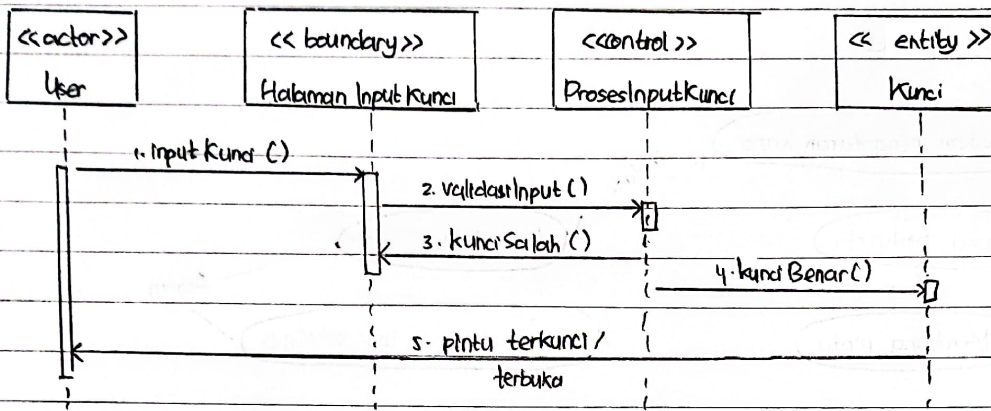 <<actor>>
User
<< boundary >>
Halaman Input Kunci
<<control >>
ProsesInputKunci
<< entity >>
Kunci
1. input Kunci ()
2. validasiInput()
3. kunci Salah ()
4. kunci Benar()
5. pintu terkunci /
terbuka